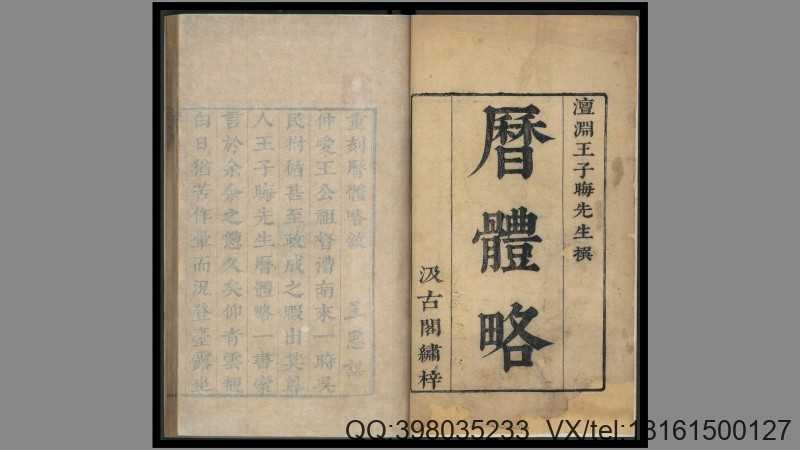 澶淵王子晦先生撰
曆體略
汲古閣繡梓
重刻曆體略敘 王
仲愛王公祖督漕南來一時吳
民拊循甚至政成之暇出其尊
人王子晦先生曆體略一書索
言於余余之憊久矣仰青雲覩
白日猶苦作暈而況登臺露坐
QQ:398035233 VX/tel:18161500127